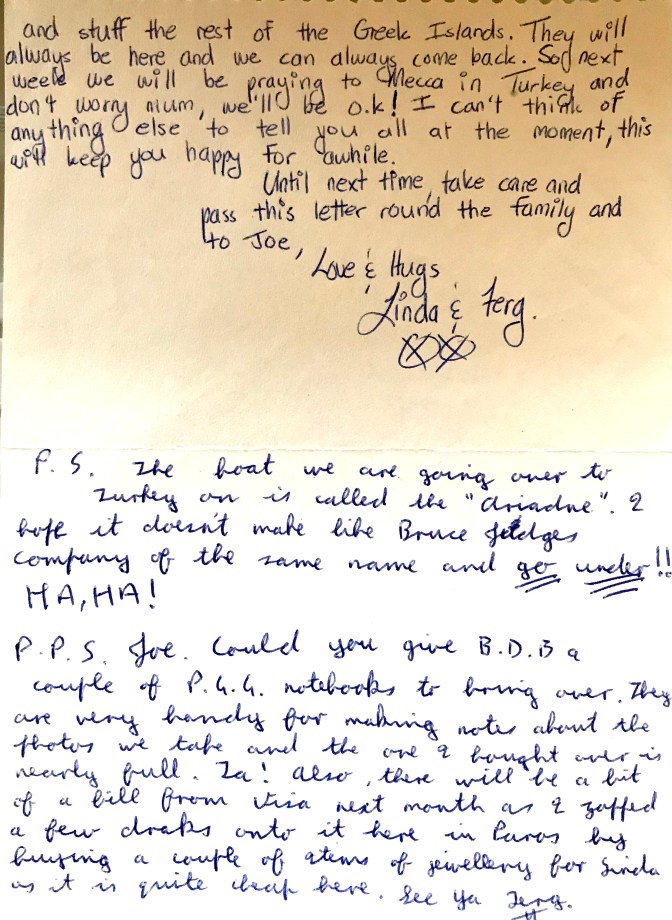 and stuff the rest of the Greek Islands. They will
always be here and we can always come back. So next
week we will be praying to Mecca in Turkey and
don't worry mum, we'll be o.k! I can't think of
anything else to tell you all at the moment, this
will keep you happy for awhile.
Until next time, take care and
pass this letter round the family and
to Joe,
Love & Hugs
Linda & Ferg.
P.S. The boat we are going over to
Turkey on is called the "Ariadne". I
hope it doesn't make like Bruce Judges
company of the same name and go under!!
HA, HA!
P.P.S. Joe. Could you give B.D.B a
couple of P.G.G. notebooks to bring over. They
are very handy for making notes about the
photos we take and the one I bought over is
nearly full. Ta! Also, there will be a bit
of a bill from Visa next month as I zapped
a few draks onto it here in Paros by
buying a couple of items of jewellery for Linda
as it is quite cheap here. See Ya Ferg.